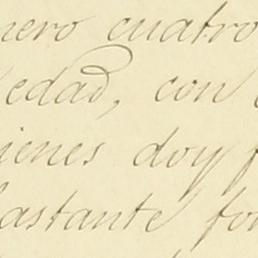 nero cuatro
edad, con
ienes doy f
astante for